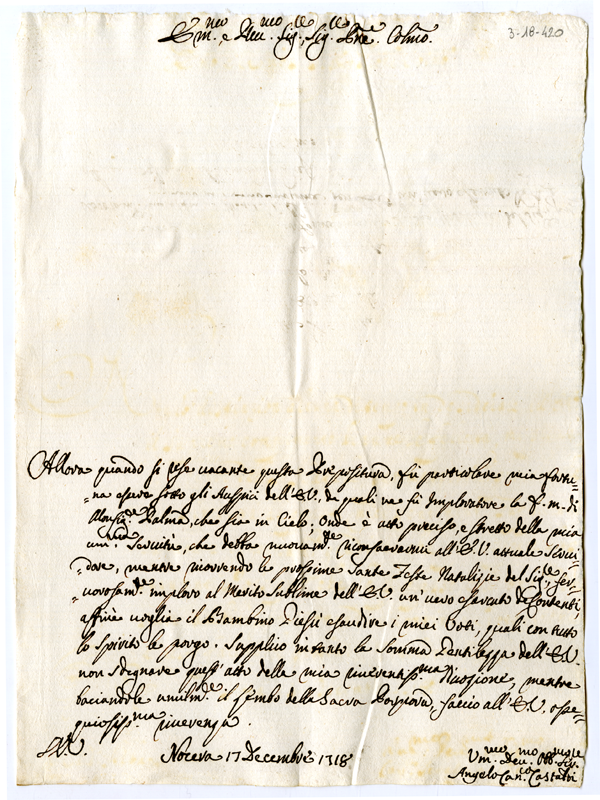 3-18-420
Em.mo e Rev.mo Sig.re Sig.re Pne. Colmo.
Allora quando si rese vacante questa Prepositura, fù particolare mia fortu=
=na essere sotto gli Auspici dell'E.V., de quali ne fù Imploratore la f. m. di
Palma, che sia in Cielo; Onde è atto preciso, e stretto della mia
um. Servitù, che debba nuovam.te riconsacrarmi all'E.V. attuale
=dore, mentre ricorrendo le prossime Sante Feste Natalizie del Sig.re fer=
=vorosam.te imploro al Merito Sublime dell'E.V. un vero di Contenti,
affinè voglia il Bambino Giesù esaudire i miei Voti, quali con tutto
lo spirito le porgo. Supplico intanto la Somma Gentilezza dell'E.V.
non sdegnare quest'atto della mia riverentiss.ma divozione, mentre
baciandole umilm.te il lembo della Sacra Porpora, faccio all'E.V. osse=
quiosiss.ma riverenza.
E.V.
Nocera 17 Decembre 1718
Um.mo Dev.mo Obb. Ser.
Angelo Can.co